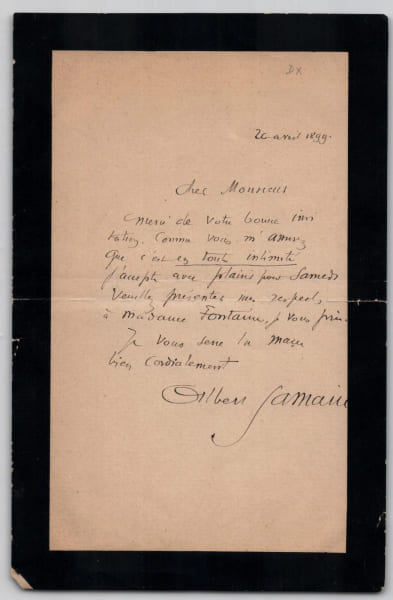 DX
20 avril 1899.
Cher Monsieur
Merci de votre bonne invi
tation. Comme vous m'assurez
que c'est en toute intimité
j'accepte avec plaisir pour Samedi
Veuillez présenter mes respects
à Madame Fontaine, je vous prie.
Je vous serre la main
bien cordialement
Albert Samain